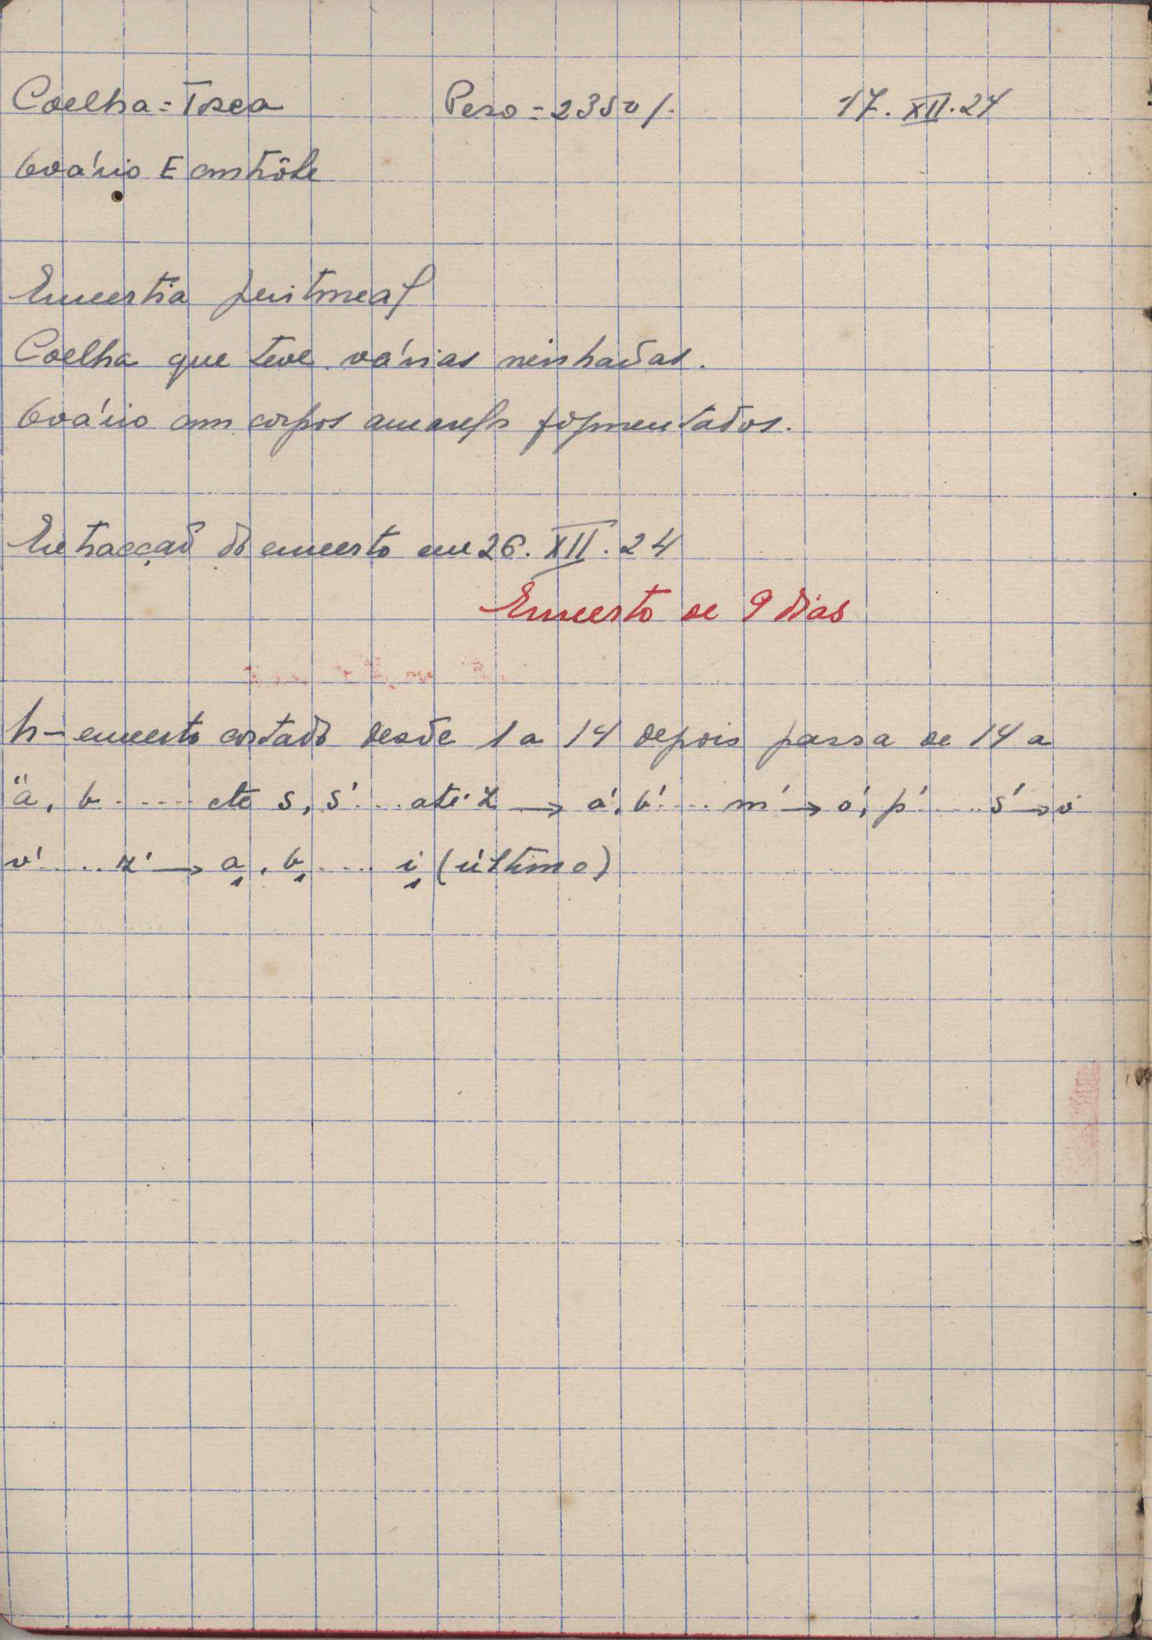 Coelha = Tosca Peso = 2350 g. 17.XII.24
Ovário E contrôle
Enxertia peritoneal
Coelha que teve várias ninhadas.
Ovário com corpos amarelos pigmentados.
Extracção do enxerto em 26.XII.24
Enxerto de 9 dias
h - enxerto cortado desde 1 a 14 depois passa de 14 a
"a, b ..... etc s, s' ... até z → a', b' .... m' → o', p' ..... s' → v'
v' ... z' → a, . b, .... i, (último)